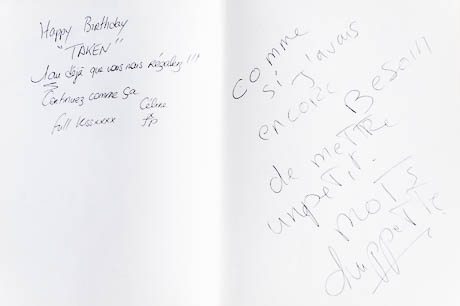 Happy Birthday
"TAKEN"
1an déjà que vous nous Régalez !!!
Continuez comme ça
Céline
full kissxxxx
comme
si j'avais
encore Besoin
de mettre
un petit
mots